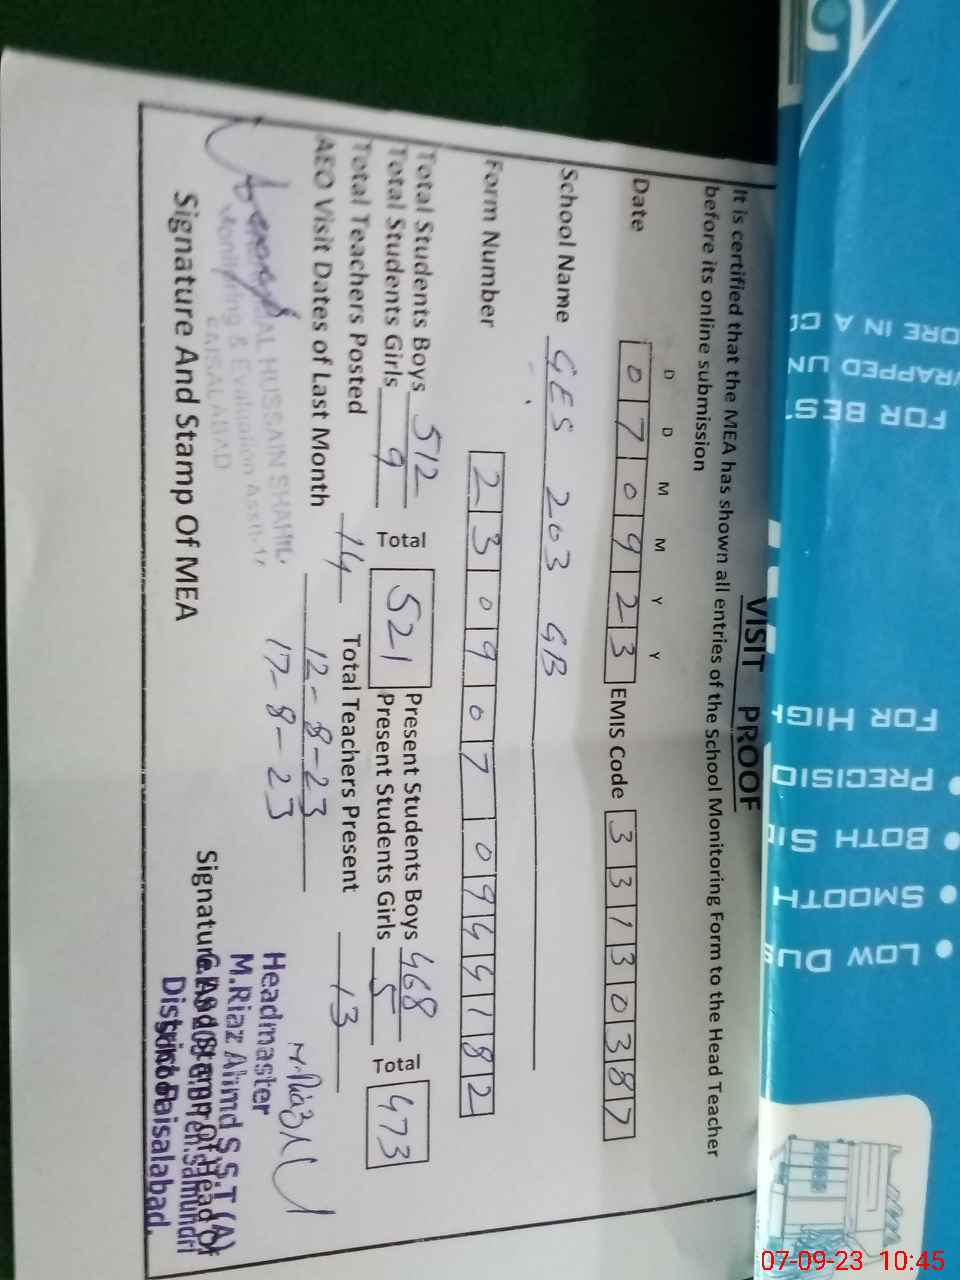 VISIT PROOF
It is certified that the MEA has shown all entries of the School Monitoring Form to the Head Teacher
before its online submission
D D M M Y Y
Date 0 7 0 9 2 3 EMIS Code 3 3 1 3 0 3 8 7
School Name GES 203 GB
Form Number 2 3 0 9 0 7 0 9 4 4 1 8 2
Total Students Boys 512 Total 521 Present Students Boys 468 Total 473
Total Students Girls 9 Present Students Girls 5
Total Teachers Posted 14 Total Teachers Present 13
AEO Visit Dates of Last Month 12-8-23
17-8-23
HUSSAIN SHAMIL
Monitoring & Evaluation
FAISALABAD
Signature And Stamp Of MEA
M.Riaz
Headmaster
M.Riaz Ahmd S.S.T (A)
Signature And Stamp Of Head Of
Samundri
District Faisalabad.
ORE IN A
WRAPPED
FOR BEST
FOR HIGH
• PRECISIO
• BOTH SI
• SMOOTH
• LOW DUS
07-09-23 10:45